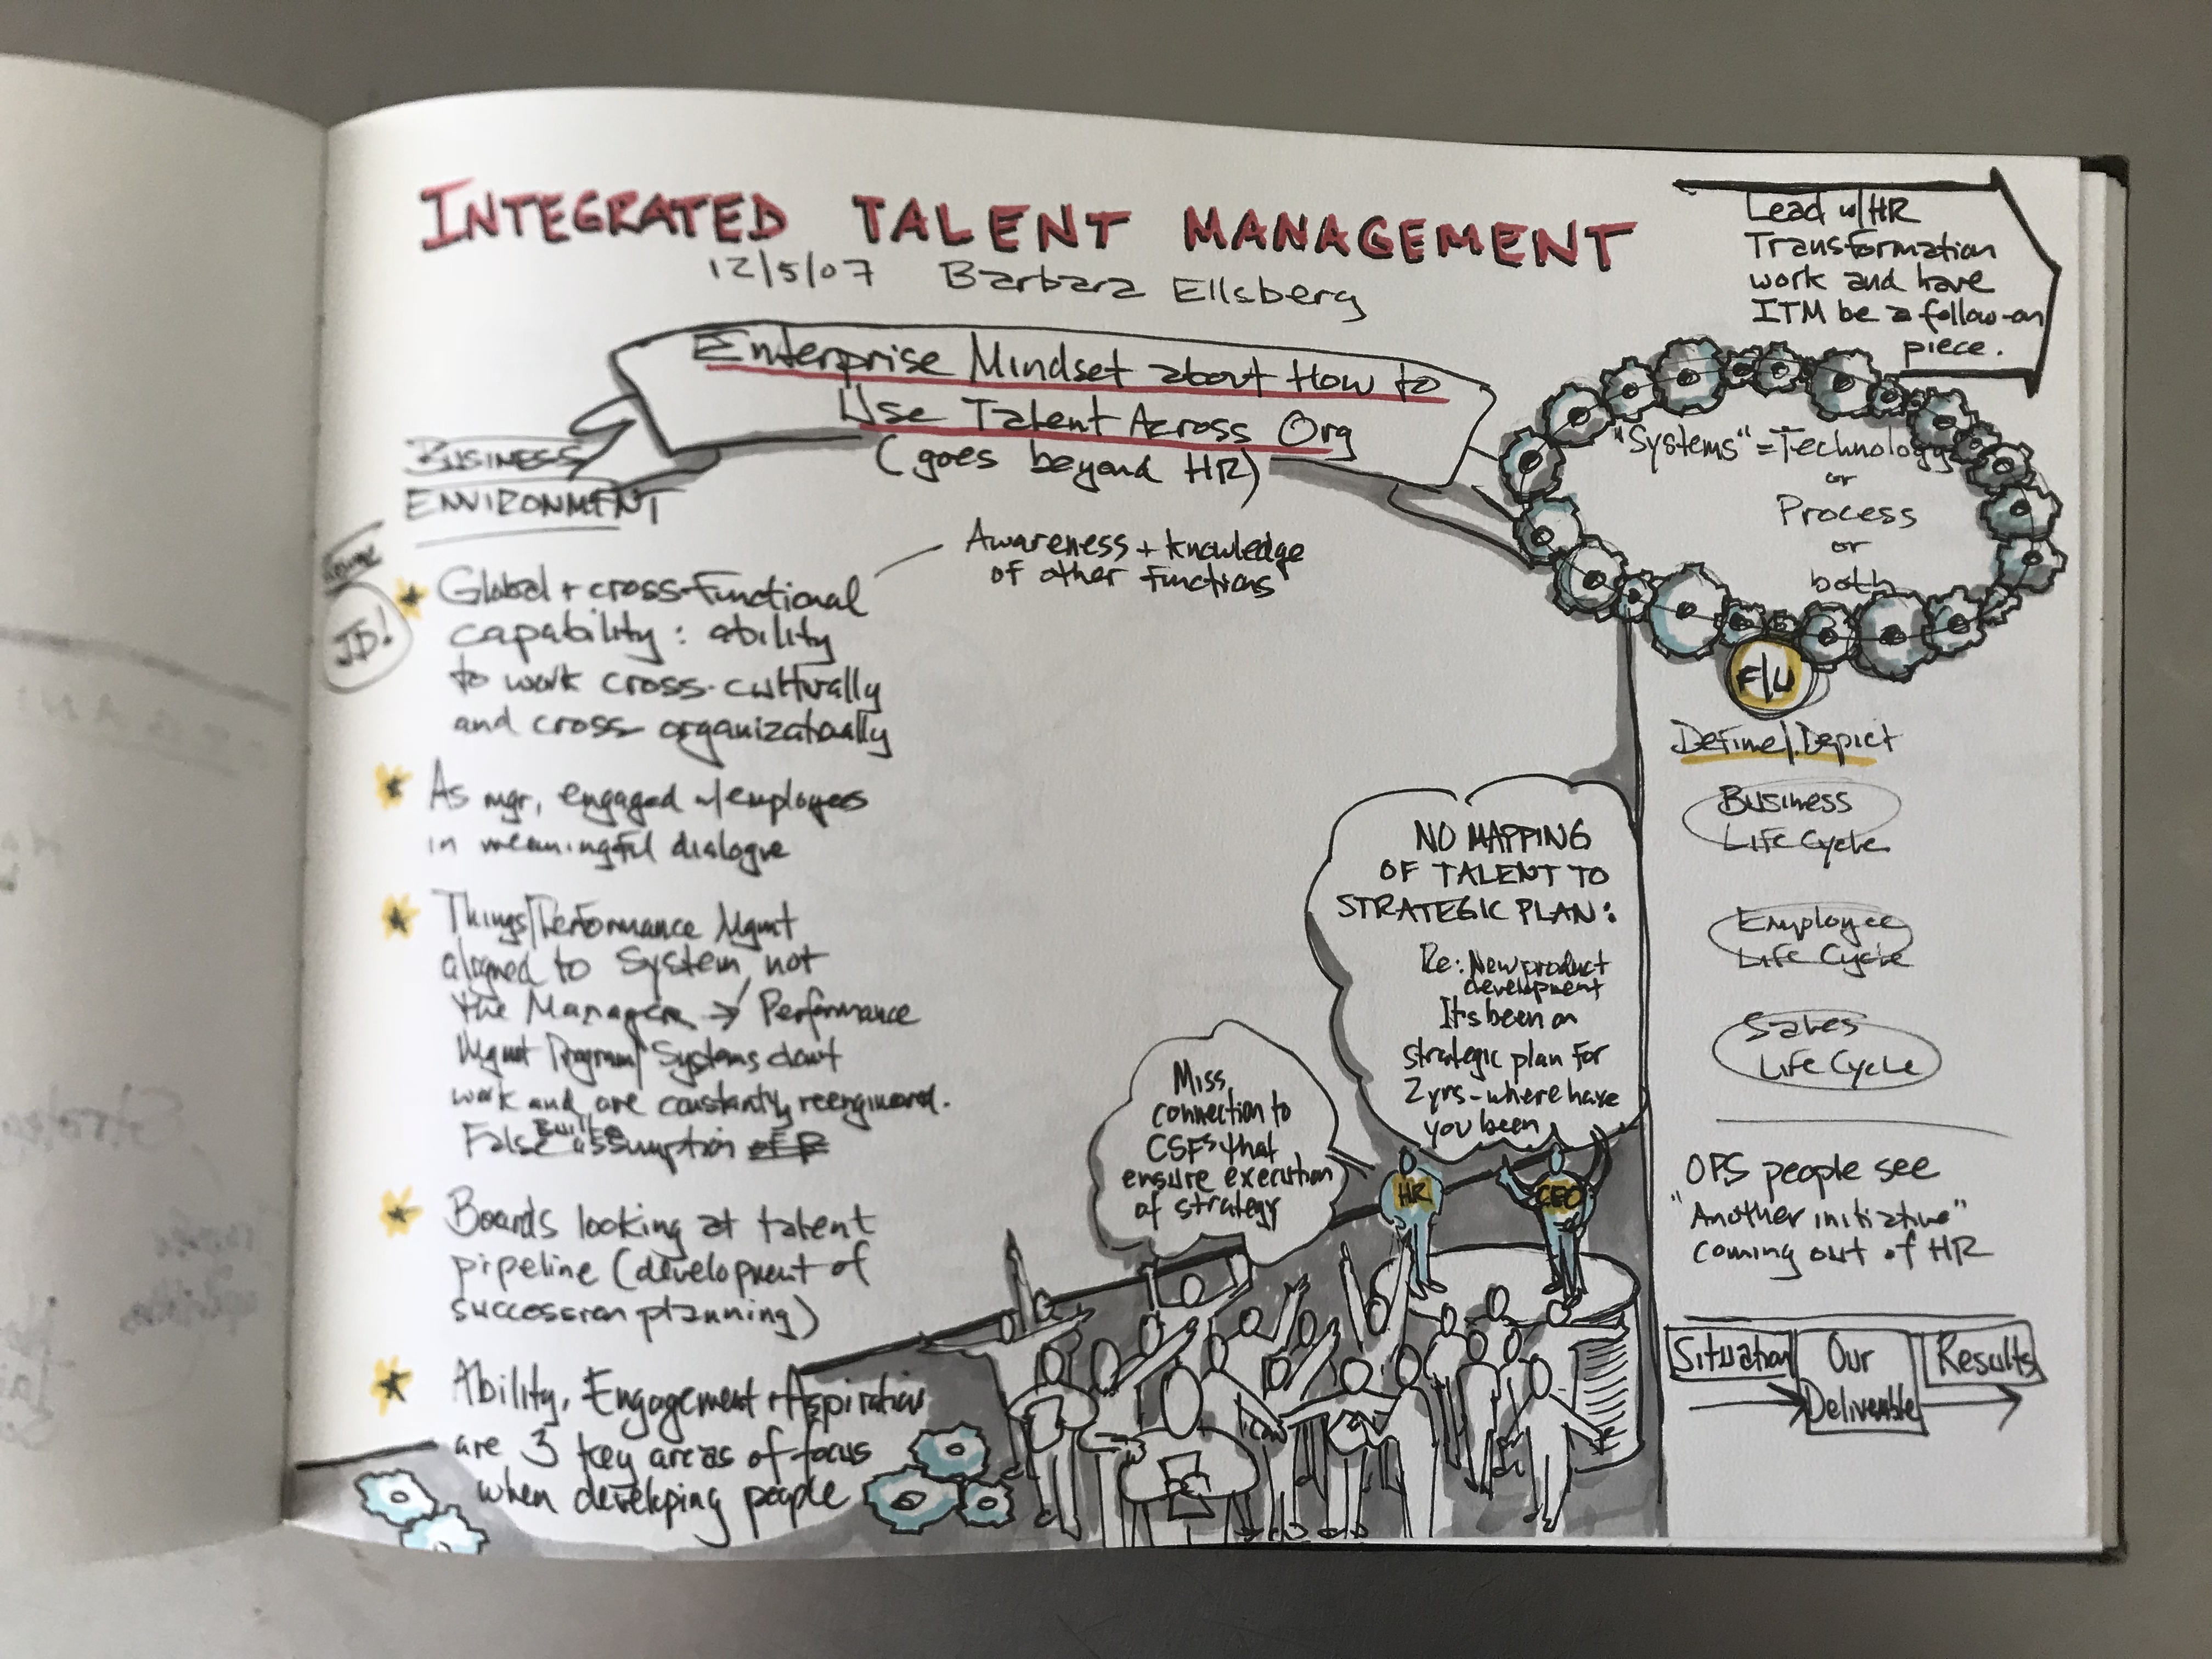 INTEGRATED TALENT MANAGEMENT
12/5/07 Barbara Ellsberg
Enterprise Mindset about How to
Use Talent Across Org
(goes beyond HR)
Lead w/HR
Transformation
work and have
ITM be a follow-on
piece.
"Systems" = Technology
or
Process
or
both
F/U
Define/Depict
Business
Life Cycle
Employee
Life Cycle
Sales
Life Cycle
OPS people see
"Another initiative"
coming out of HR
Situation
Our
Deliverable
Results
BUSINESS
ENVIRONMENT
JD!
Global + cross-functional
capability: ability
to work cross-culturally
and cross organizationally
Awareness + knowledge
of other functions
As mgr, engaged w/employees
in meaningful dialogue
Things/Performance Mgmt
aligned to System, not
the Manager → Performance
Mgmt Program/Systems don't
work and are constantly reengineered.
False Built assumption
Boards looking at talent
pipeline (development of
succession planning)
Ability, Engagement + Aspiration
are 3 key areas of focus
when developing people
Miss
connection to
CSFs that
ensure execution
of strategy
NO MAPPING
OF TALENT TO
STRATEGIC PLAN:
Re: New product
development
Its been on
strategic plan for
2 yrs - where have
you been
HR
CEO